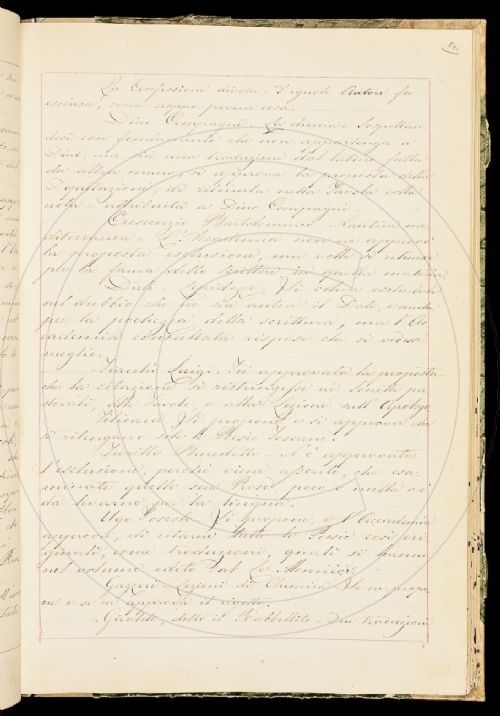 La Confessione divota - D'ignoto Autore fu
esclusa, come troppo povera cosa.
Dino Compagni - La
dosi con fondamento che non appartenga a
Dino, ma sia una traduzione dal latino fatta
da altra mano, si approva la proposta della
Deputazione, di ritenerla nella Tavola colla
nota - attribuita a Dino Compagni
Crescenzio Bartolommeo - Nautica me
diterranea - L'Accademia non ne approvò
la proposta esclusione, ma volle si ritenesse
per la fama dello scrittore in questa materia.
Dati. Lepidezze. Si voleva escluderle
nel dubbio che ne sia autore il Dati, e anche
per la della scrittura; ma l'Ac
cademia consultata rispose che si vedesse
meglio.
Luigi. Fu approvata la proposta
che la citazione si ristringesse ai Sonetti pa
storali, alle Favole, e alla Lezione sull'Apologo
Filicaia. Si propone, e si approva che
si ritengano solo le Poesie Toscane.
Fioretti Benedetto - N'è approvata
l'esclusione, perchè viene asserito, che esa
minate quelle sue Prose poco o nulla v'è
da levarne per la lingua.
Ugo Foscolo. Si propone, e l'Accademia
approva, di citarne tutte le Poesie così ori
ginali, come traduzioni, quali si hanno
nel volume edito dal Le Monnier.
Gazzeri - Lezioni di Chimica Se ne propo
ne e si ne approva il rigetto.
Giraldi, detto il - Sue traduzioni